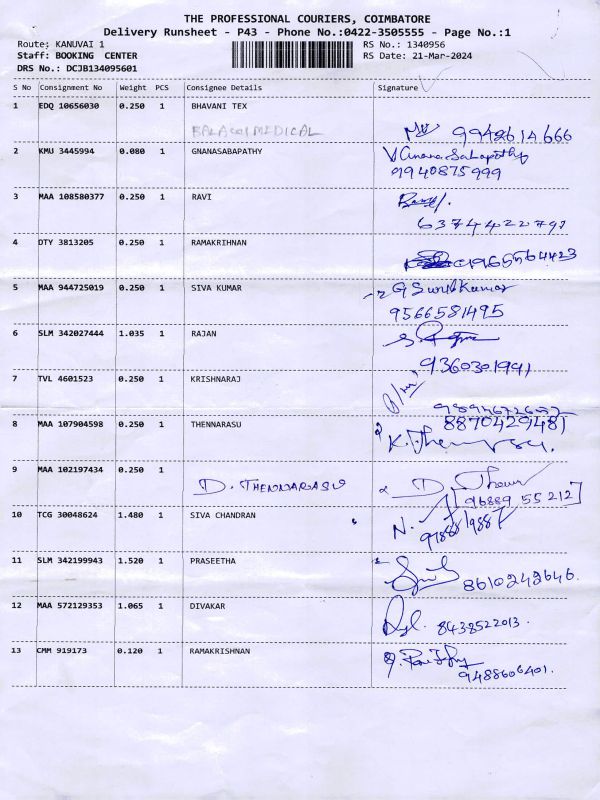 THE PROFESSIONAL COURIERS, COIMBATORE
Delivery Runsheet - P43 - Phone No.:0422-3505555 - Page No.:1
Route: KANUVAI 1 RS No.: 1340956
Staff: BOOKING CENTER RS Date: 21-Mar-2024
DRS No.: DCJB134095601
S No Consignment No Weight PCS Consignee Details Signature
1 EDQ 10656030 0.250 1 BHAVANI TEX
BALAJI MEDICAL
9948614666
2 KMU 3445994 0.080 1 GNANASABAPATHY
V Gnana Sabapathy
01940875999
3 MAA 108580377 0.250 1 RAVI
6374422791
4 DTY 3813205 0.250 1 RAMAKRIHNAN
5 MAA 944725019 0.250 1 SIVA KUMAR
9566581495
6 SLM 342027444 1.035 1 RAJAN
9360301991
7 TVL 4601523 0.250 1 KRISHNARAJ
8 MAA 107904598 0.250 1 THENNARASU 8870429481
9 MAA 102197434 0.250 1
D. THENNARASU
96889 55 212
10 TCG 30048624 1.480 1 SIVA CHANDRAN
11 SLM 342199943 1.520 1 PRASEETHA
8610242646.
12 MAA 572129353 1.065 1 DIVAKAR
8438522013.
13 CMM 919173 0.120 1 RAMAKRISHNAN
9488606401.